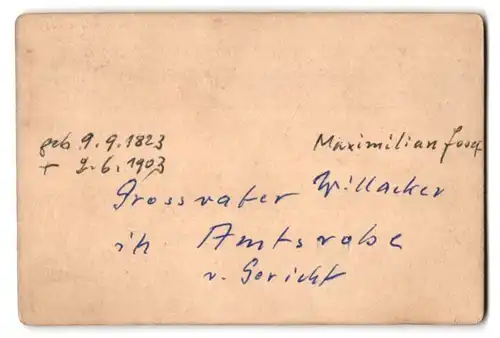 geb 9.9.1823 Maximilian Josef
+ 2.6.1903
Grossvater Willacker
in Amtsrobe
v. Gericht